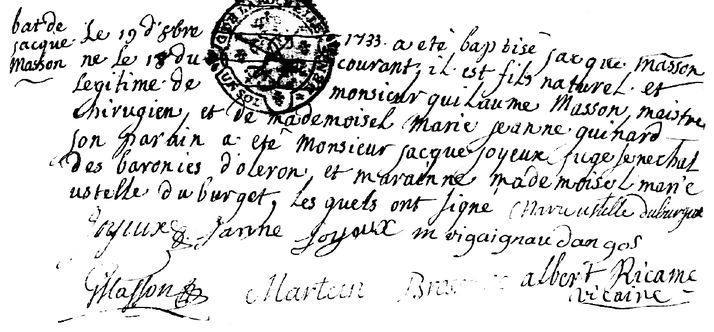 bat de
jacque
Masson
Le 19 d'8bre 1733 a eté baptisé jacque masson
ne le 18 du courant, il est fils naturel et
legitime de monsieur guilaume Masson, maistre
chirugien, et de mademoisel marie jeanne guinard
son parain a eté monsieur jacque joyeux juge senechal
des baronies d'oleron, et maraenne mademoisel marie
ustelle du burget, les quels ont signé Marie ustelle duburguet
Joyeux janne joyeux m vigaignaudangos
Masson Martein albert Ricame
vicaire